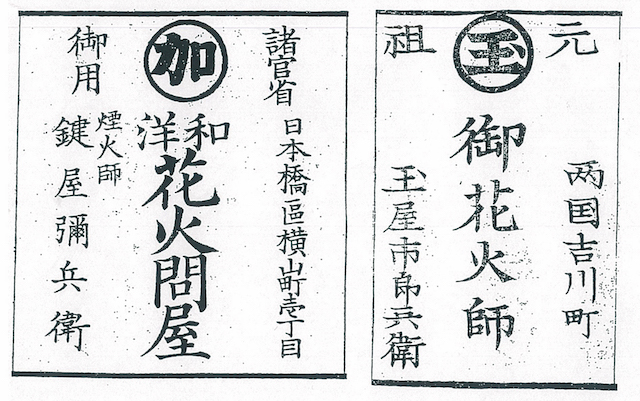 元祖
玉
两国吉川町
御花火師
玉屋市郎兵衛
諸官省
御用
加
日本橋區横山町壱丁目
和洋
花火問屋
煙火師
鍵屋彌兵衛